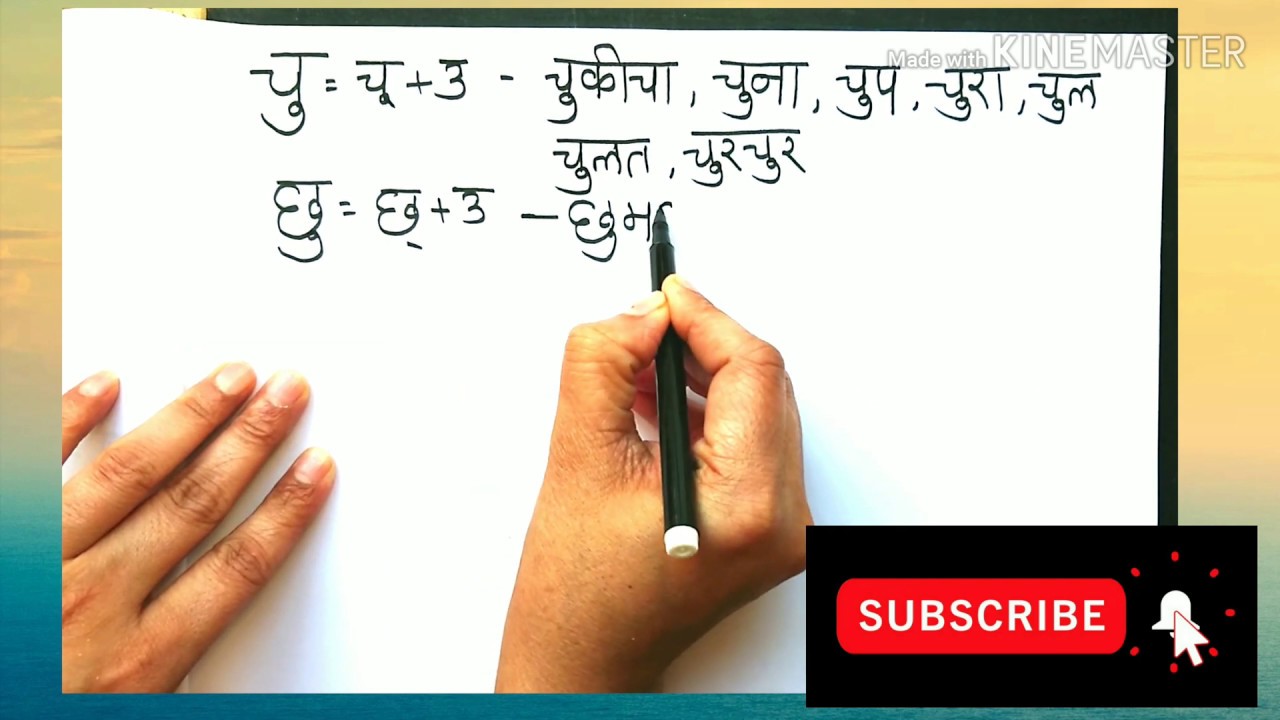 Made with KINEMASTER
चु = च् + उ - चुकीचा, चुना, चुप, चुरा, चुल
चुलत, चुरचुर
छु = छ् + उ - छुम
SUBSCRIBE